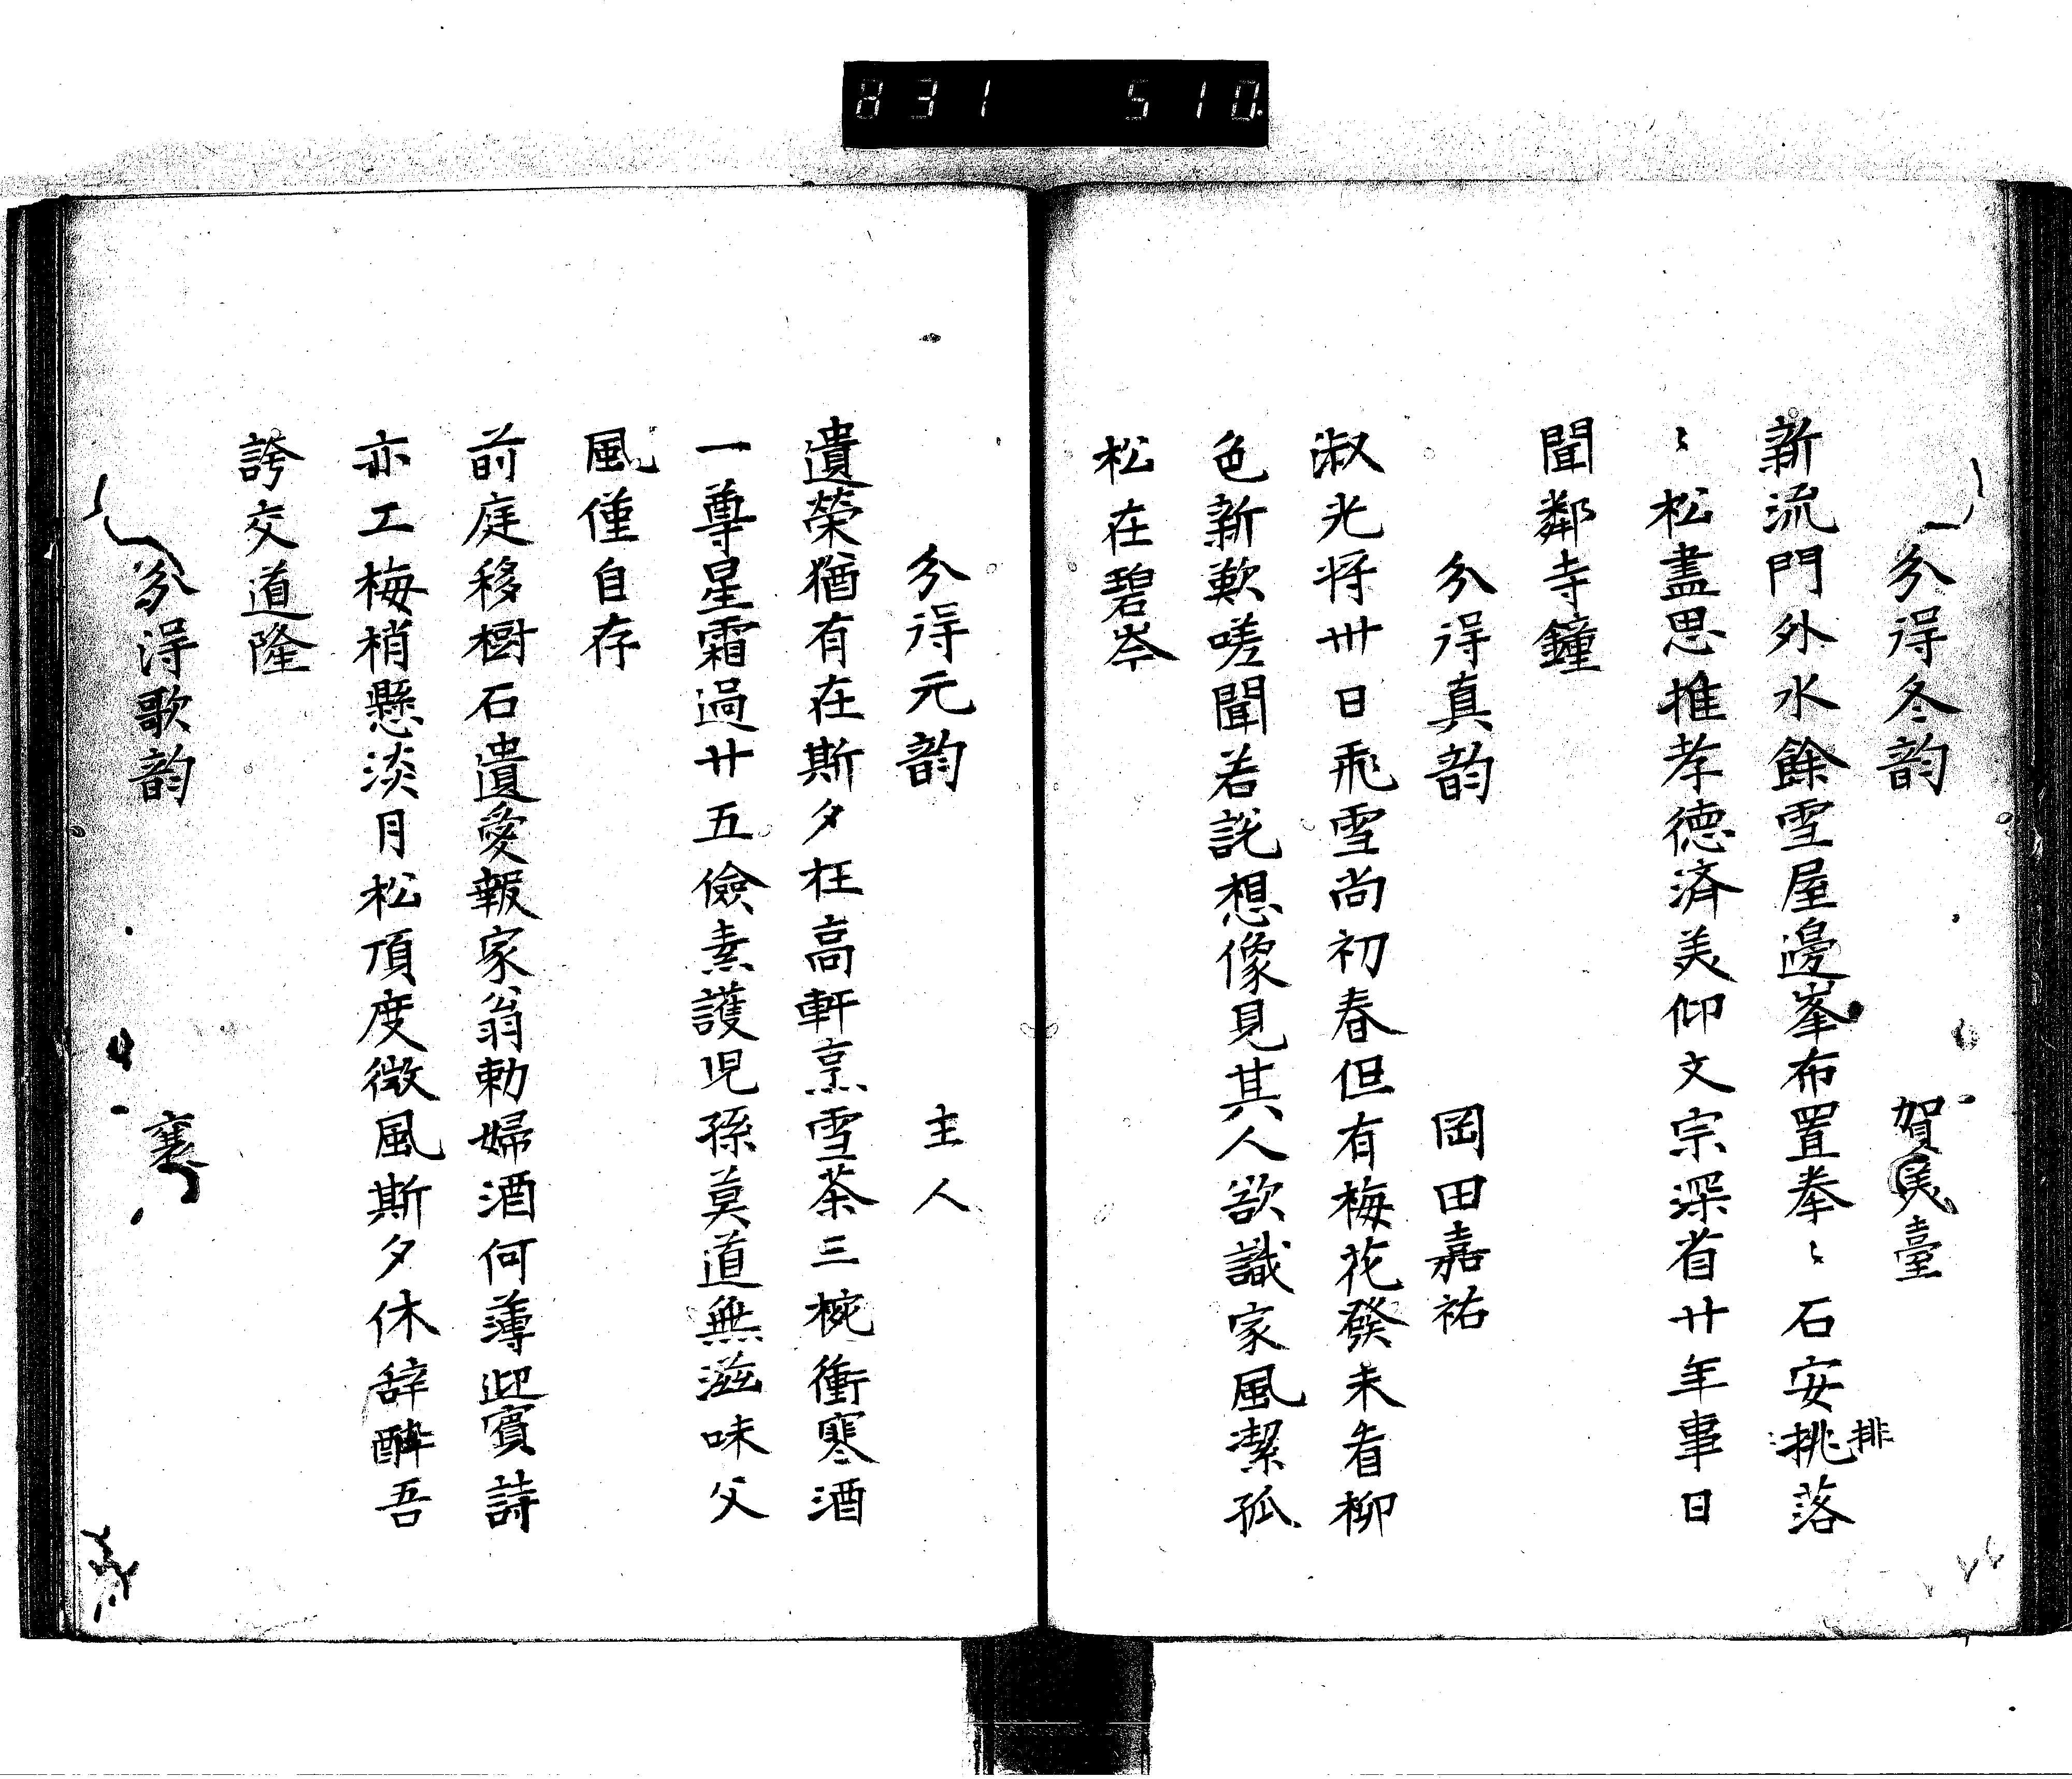 831 510.
分得冬韵 賀美臺
新流門外水餘雪屋邊峯布置拳〻石安挑落
排
〻松盡思推孝德済美仰文宗深省廿年事日
聞鄰寺鐘
分得真韵 岡田嘉祐
淑光将卅日飛雪尚初春但有梅花發未看柳
色新歎嗟聞若説想像見其人欲識家風潔孤
松在碧岑
分得元韵 主人
遺榮猶有在斯夕枉高軒烹雪茶三椀衝寒酒
一尊星霜過廿五儉素護児孫莫道無滋味父
風僅自存
前庭移樹石遺愛報家翁勅婦酒何薄迎賓詩
亦工梅梢懸淡月松頂度微風斯夕休辞醉吾
誇交道隆
分得歌韵 襄